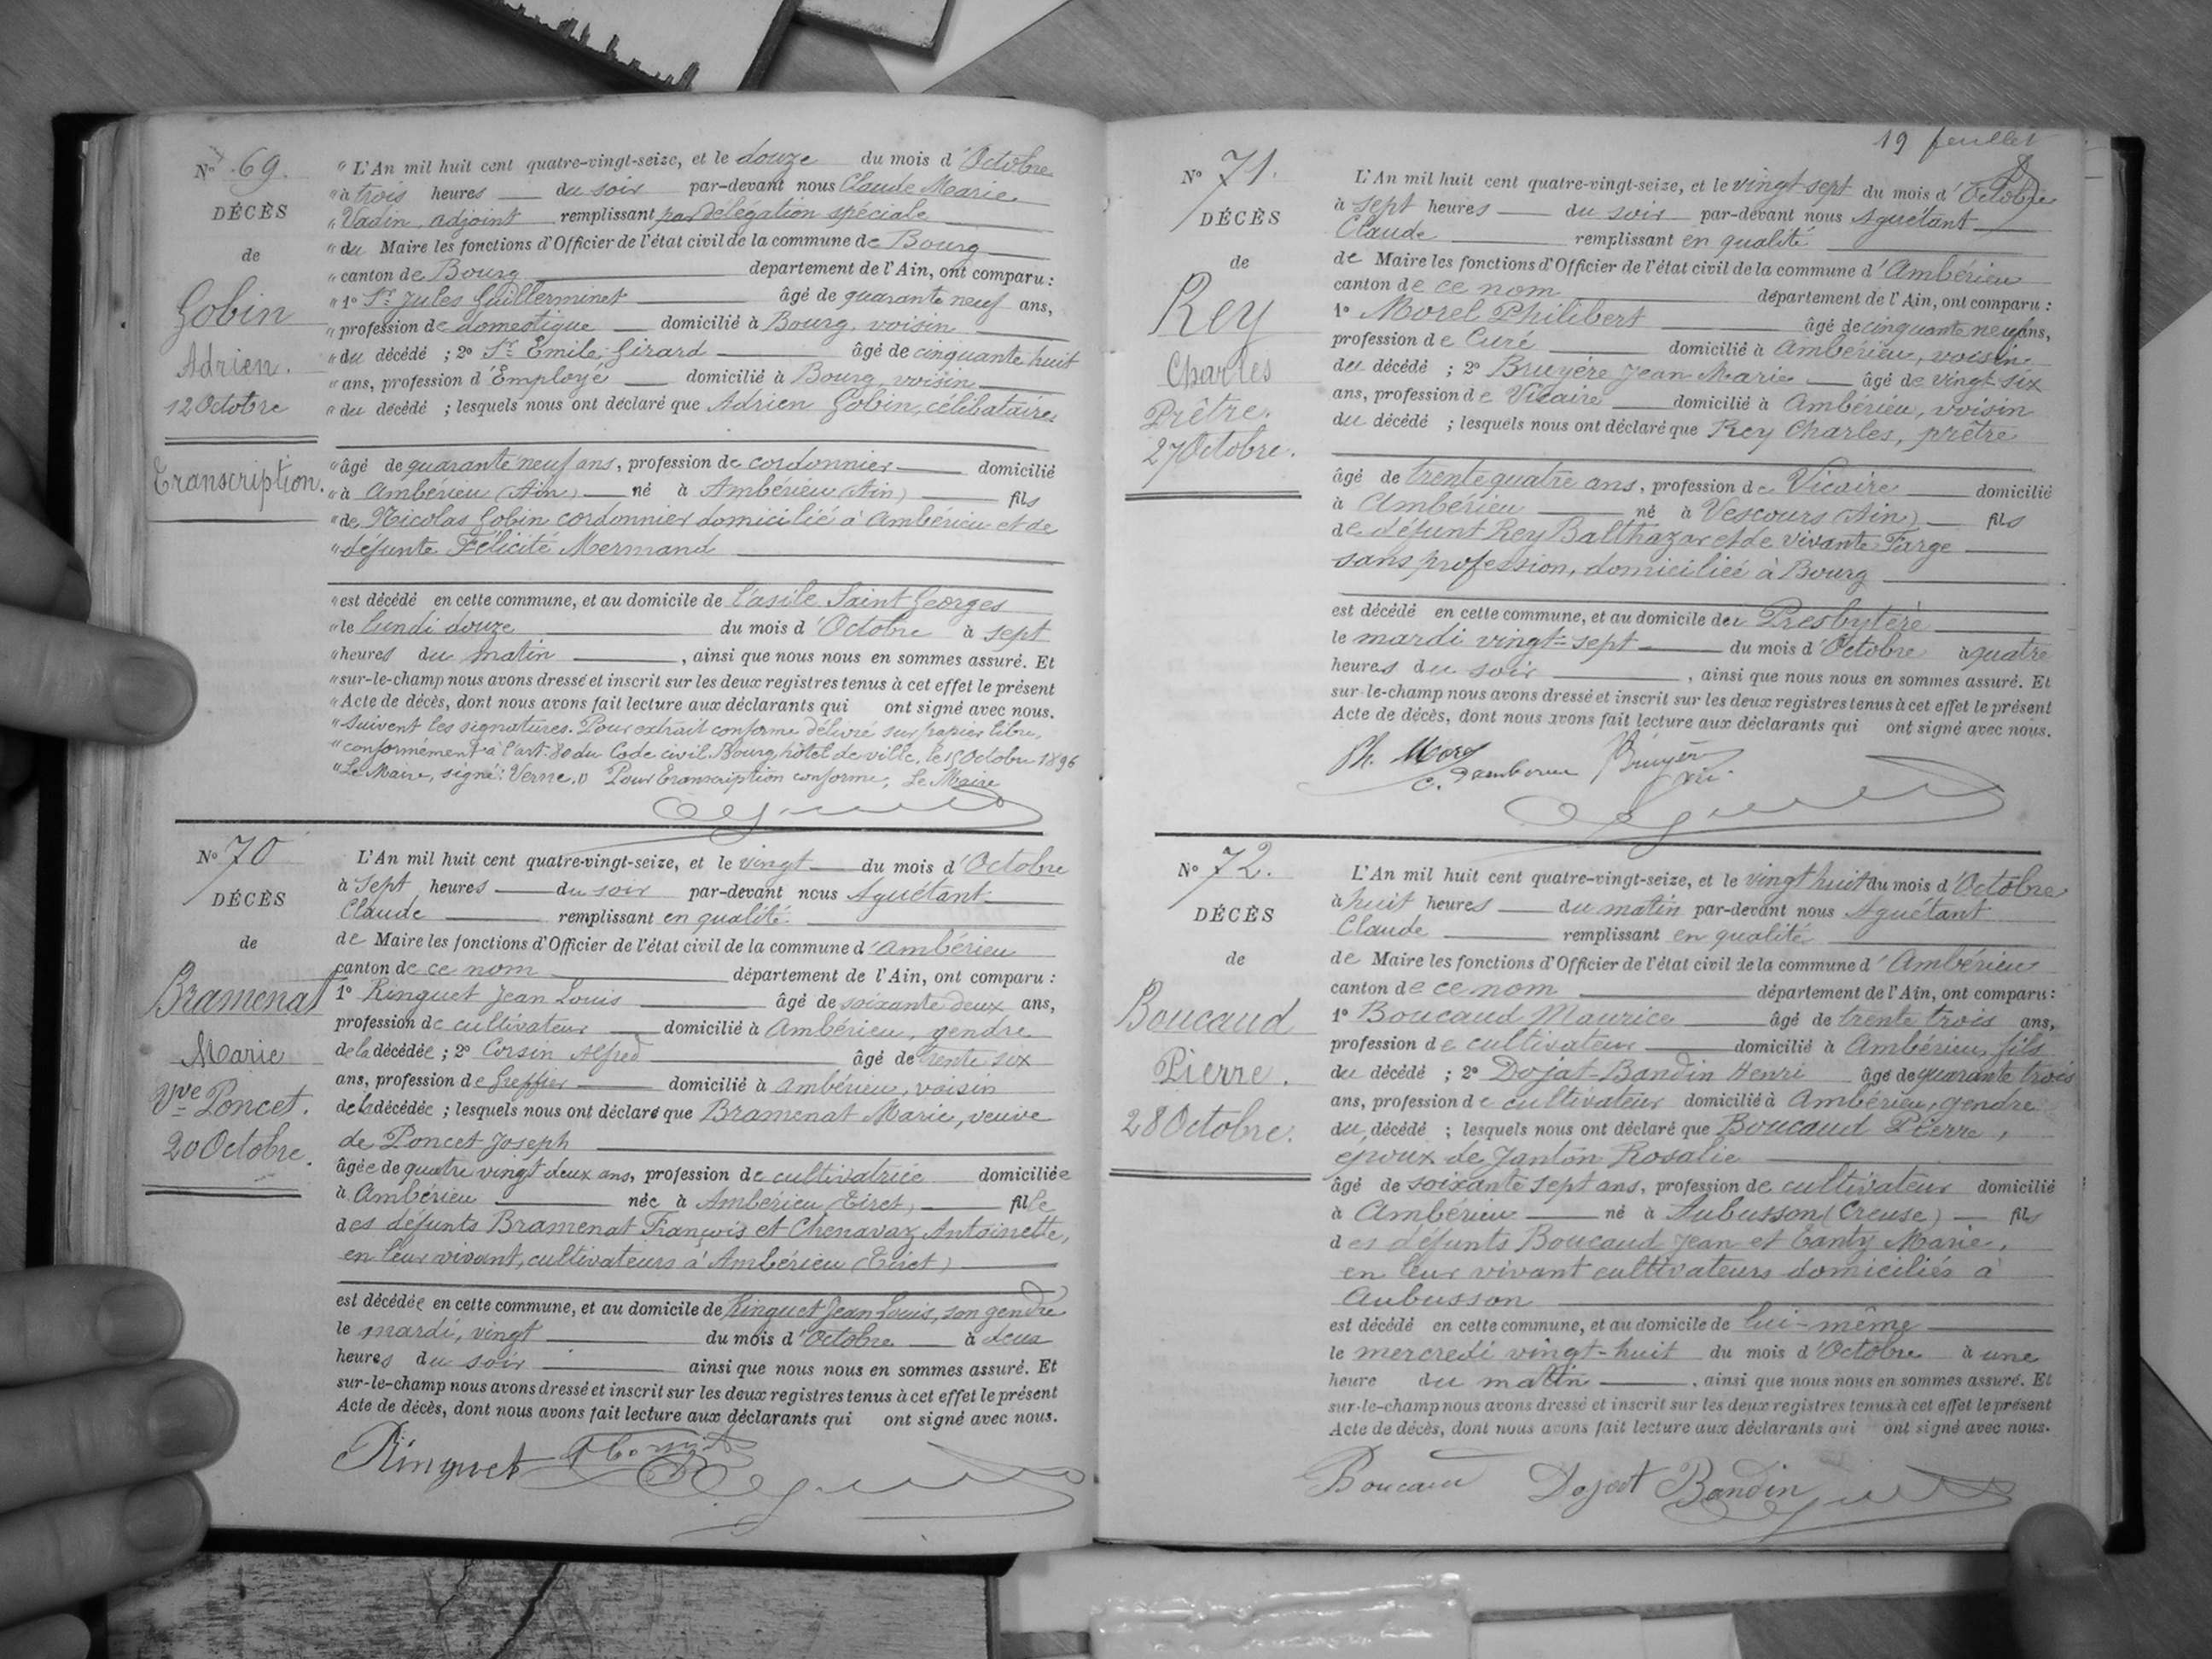 Nº 69.
DÉCÈS
de
Gobin
Adrien.
12 Octobre
Transcription.
" L'An mil huit cent quatre-vingt-seize, et le douze du mois d'Octobre
" à trois heures du soir par-devant nous Claude Marie
" Vadin, adjoint remplissant par délégation spéciale
" du Maire les fonctions d'Officier de l'état civil de la commune de Bourg
" canton de Bourg département de l'Ain, ont comparu :
" 1º Sr Jules Guillerminet âgé de quarante neuf ans,
" profession de domestique domicilié à Bourg, voisin
" du décédé ; 2º Sr Emile Girard âgé de cinquante huit
" ans, profession d'Employé domicilié à Bourg, voisin
" du décédé ; lesquels nous ont déclaré que Adrien Gobin, célibataire
" âgé de quarante neuf ans, profession de cordonnier domicilié
" à Ambérieu (Ain) né à Ambérieu (Ain) fils
" de Nicolas Gobin cordonnier domicilié à Ambérieu et de
" défunte Félicité Mermand
" est décédé en cette commune, et au domicile de l'asile Saint Georges
" le lundi douze du mois d'Octobre à sept
" heures du matin, ainsi que nous nous en sommes assuré. Et
" sur-le-champ nous avons dressé et inscrit sur les deux registres tenus à cet effet le présent
" Acte de décès, dont nous avons fait lecture aux déclarants qui ont signé avec nous.
" Suivent les signatures. Pour extrait conforme délivré sur papier libre,
" conformément à l'art. 80 du Code civil. Bourg, hôtel de ville, le 15 Octobre 1896
" Le Maire, signé : Verne. » Pour transcription conforme, Le Maire
Nº 70
DÉCÈS
de
Bramenat
Marie
Vve Poncet.
20 Octobre.
L'An mil huit cent quatre-vingt-seize, et le vingt du mois d'Octobre
à sept heures du soir par-devant nous Aguétant
Claude remplissant en qualité
de Maire les fonctions d'Officier de l'état civil de la commune d'Ambérieu
canton de ce nom département de l'Ain, ont comparu :
1º Ringuet Jean Louis âgé de soixante deux ans,
profession de cultivateur domicilié à Ambérieu, gendre
de la décédée ; 2º Corsin Alfred âgé de trente six
ans, profession de Greffier domicilié à Ambérieu, voisin
de la décédée ; lesquels nous ont déclaré que Bramenat Marie, veuve
de Poncet Joseph
âgée de quatre vingt deux ans, profession de cultivatrice domiciliée
à Ambérieu née à Ambérieu (Tiret) fille
des défunts Bramenat François et Chenavaz Antoinette,
en leur vivant, cultivateurs à Ambérieu (Tiret)
est décédée en cette commune, et au domicile de Ringuet Jean Louis, son gendre
le mardi, vingt du mois d'Octobre à deux
heures du soir ainsi que nous nous en sommes assuré. Et
sur-le-champ nous avons dressé et inscrit sur les deux registres tenus à cet effet le présent
Acte de décès, dont nous avons fait lecture aux déclarants qui ont signé avec nous.
Ringuet
19 feuillet
Nº 71.
DÉCÈS
de
Rey
Charles
Prêtre.
27 Octobre.
L'An mil huit cent quatre-vingt-seize, et le vingt-sept du mois d'Octobre
à sept heures du soir par-devant nous Aguétant
Claude remplissant en qualité
de Maire les fonctions d'Officier de l'état civil de la commune d'Ambérieu
canton de ce nom département de l'Ain, ont comparu :
1º Morel Philibert âgé de cinquante neuf ans,
profession de Curé domicilié à Ambérieu, voisin
du décédé ; 2º Bruyère Jean Marie âgé de vingt six
ans, profession de Vicaire domicilié à Ambérieu, voisin
du décédé ; lesquels nous ont déclaré que Rey Charles, prêtre
âgé de trente quatre ans, profession de Vicaire domicilié
à Ambérieu né à Vescours (Ain) fils
de défunt Rey Balthazar et de vivante Farge
sans profession, domiciliée à Bourg
est décédé en cette commune, et au domicile du Presbytère
le mardi vingt-sept du mois d'Octobre à quatre
heures du soir, ainsi que nous nous en sommes assuré. Et
sur-le-champ nous avons dressé et inscrit sur les deux registres tenus à cet effet le présent
Acte de décès, dont nous avons fait lecture aux déclarants qui ont signé avec nous.
Ph. Morel Bruyère
Nº 72.
DÉCÈS
de
Boucaud
Pierre.
28 Octobre.
L'An mil huit cent quatre-vingt-seize, et le vingt huit du mois d'Octobre
à huit heures du matin par-devant nous Aguétant
Claude remplissant en qualité
de Maire les fonctions d'Officier de l'état civil de la commune d'Ambérieu
canton de ce nom département de l'Ain, ont comparu :
1º Boucaud Maurice âgé de trente trois ans,
profession de cultivateur domicilié à Ambérieu, fils
du décédé ; 2º Dojat-Bandin Henri âgé de quarante trois
ans, profession de cultivateur domicilié à Ambérieu, gendre
du décédé ; lesquels nous ont déclaré que Boucaud Pierre,
époux de Janton Rosalie
âgé de soixante sept ans, profession de cultivateur domicilié
à Ambérieu né à Aubusson (Creuse) fils
des défunts Boucaud Jean et Tanty Marie,
en leur vivant cultivateurs domiciliés à
Aubusson
est décédé en cette commune, et au domicile de lui-même
le mercredi vingt-huit du mois d'Octobre à une
heure du matin, ainsi que nous nous en sommes assuré. Et
sur-le-champ nous avons dressé et inscrit sur les deux registres tenus à cet effet le présent
Acte de décès, dont nous avons fait lecture aux déclarants qui ont signé avec nous.
Boucaud Dojat Bandin